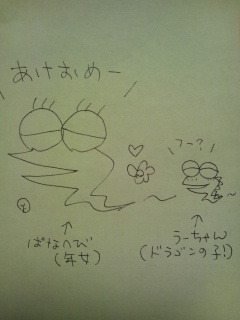 あけおめー
フー?
ぱなへび
(年女)
うーちゃん
(ドラゴンの子!)